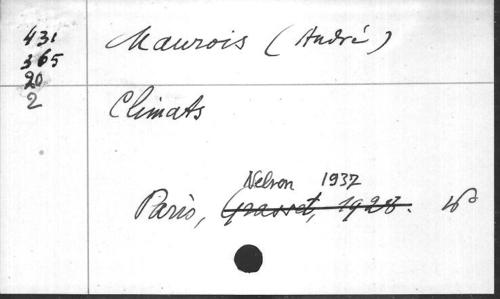 431
365
20
2
Maurois (André)
Climats
Nelson 1937
Paris, Grasset, 1928. 16º